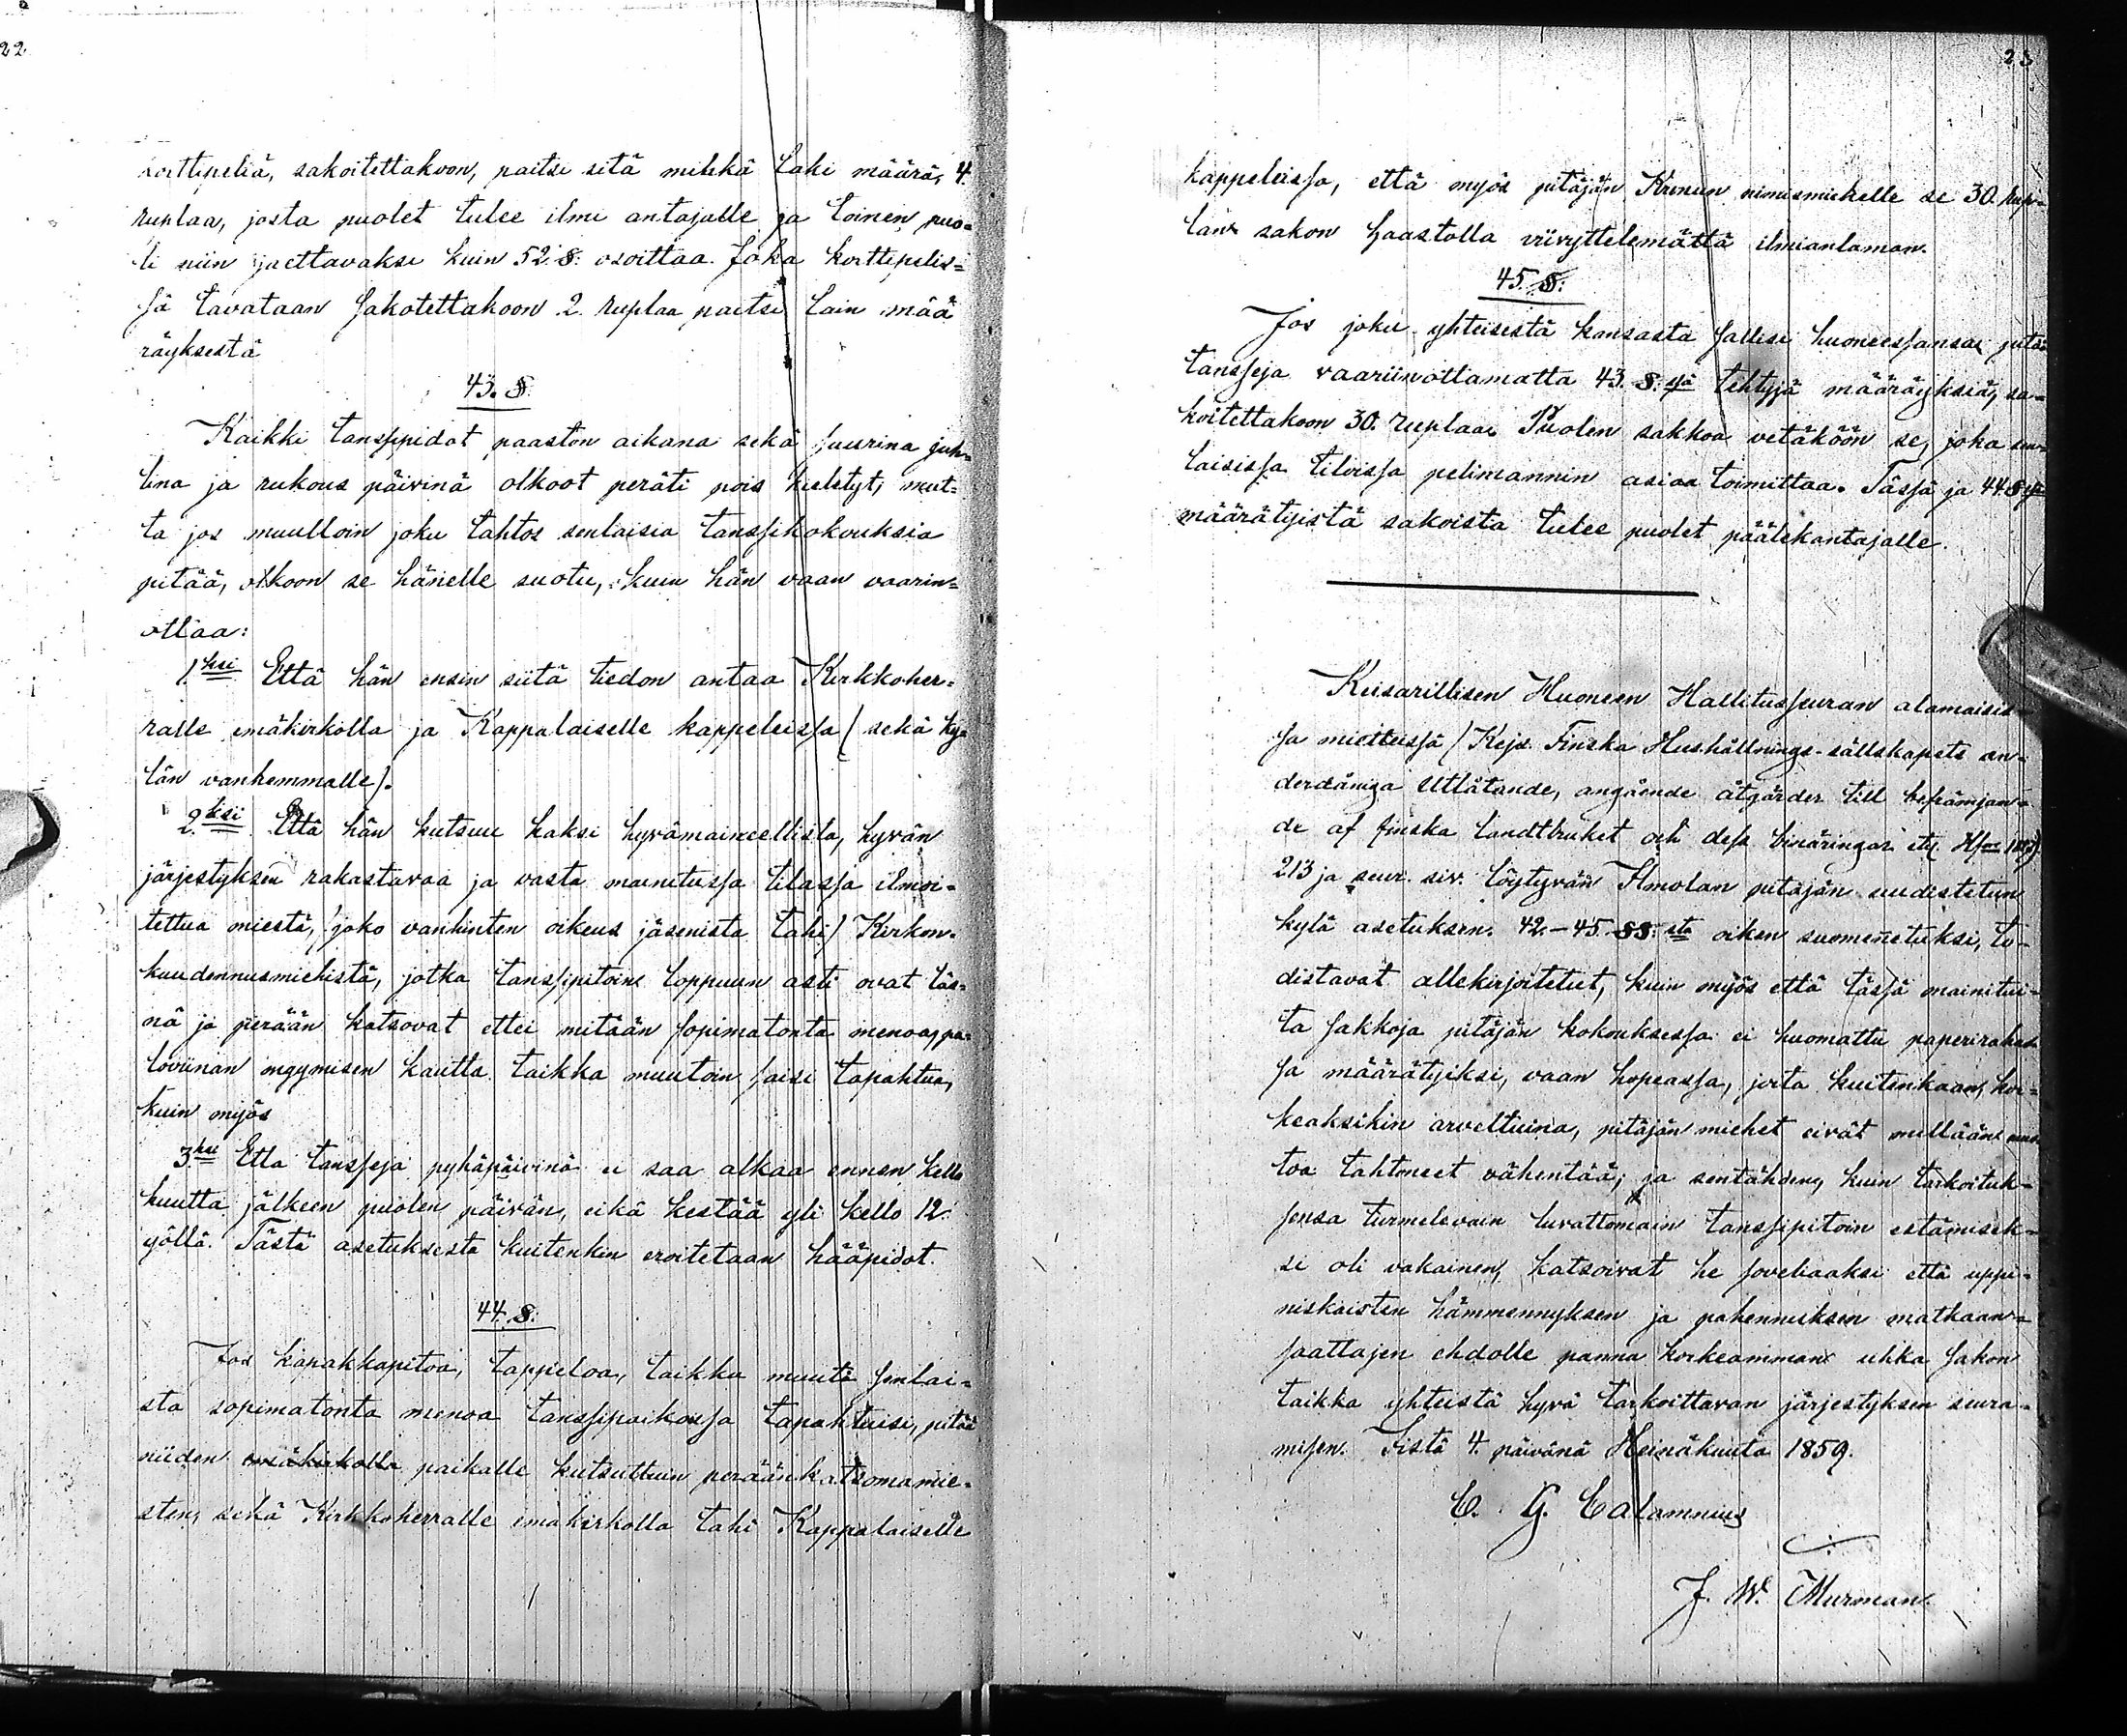 22
korttipeliä, sakoitettakoon, paitsi sitä mihkä Laki määrä, 4.
ruplaa, josta puolet tulee ilmi antajalle ja toinen puo=
li niin jaettavaksi kuin 52.§. osoittaa. Joka korttipelis=
sä tavataan sakotettakoon 2. ruplaa paitsi Lain mää
räyksestä
43.§.
Kaikki tanssipidot paaston aikana sekä suurina juh=
lina ja rukous päivinä olkoot peräti pois kieletyt, mut=
ta jos muulloin joku tahtos senlaisia tanssikokouksia
pitää, olkoon se hänelle suotu, kuin hän vaan vaarin=
ottaa:
1.ksi Että hän ensin siitä tiedon antaa Kirkkoher=
ralle emäkirkolla ja Kappalaiselle kappeleissa (sekä ky=
län vanhemmalle).
2.ksi Että hän kutsuu kaksi hyvämaineellista, hyvän
järjestyksen rakastavaa ja vasta mainitussa tilassa ilmoi=
tettua miestä, (joko vanhinten oikeus jäsenistä tahi) Kirkon=
kuudennusmiehistä, jotka tanssipitoin loppuun asti ovat läs=
nä ja perään katsovat ettei mitään sopimatonta menoa, pa=
loviinan myymisen kautta taikka muutoin saisi tapahtua,
kuin myös
3.ksi Etta tansseja pyhäpäivinä ei saa alkaa ennen kello
kuutta jälkeen puolen päivän, eikä kestää yli kello 12
yöllä. Tästä asetuksesta kuitenkin eroitetaan hääpidot.
44.§.
Jos kapakkapitoa, tappeloa, taikka muuta senlai=
sta sopimatonta menoa tanssipaikoissa tapahtuisi, pitää
niiden emäkirkolla paikalle kutsuttuin peräänkatsomamie=
sten, sekä Kirkkoherralle emäkirkolla tahi Kappalaiselle
23
kappeleissa, että myös pitäjän Kruunun nimismiehelle se 30. rup=
lan sakon haastolla viivyttelemättä ilmiantaman.
45.§.
Jos joku yhteisestä kansasta sallisi huoneessansa pitää
tansseja vaariinottamatta 43.§.ssä tehtyjä määräyksiä, sa=
koitettakoon 30. ruplaa. Puolen sakkoa vetäköön se, joka sen=
laisissa tiloissa pelimannin asiaa toimittaa. Tässä ja 44.§.ssä
määrätyistä sakoista tulee puolet päälekantajalle.
Keisarillisen Huoneen Hallitusseuran alamaisis=
sa mietteissä (Kejs. Finska Hushållnings-sällskapets un=
derdåniga Utlåtande, angående åtgärder till befrämjan=
de af finska landtbruket och dess binäringar
213 ja seur. siv. löytyvän Ilmolan pitäjän uudistetun
kylä asetuksen. 42.-45.§§.sta oiken suomenetuksi, to=
distavat allekirjoitetut, kuin myös että tässä mainitui=
ta sakkoja pitäjän kokouksessa ei huomattu paperirahas
sa määrätyiksi, vaan hopeassa, joita kuitenkaan, kor=
keaksikin arveltuina, pitäjän miehet eivät millään muo
toa tahtoneet vähentää; ja sentähden, kuin tarkoituk=
sensa turmelevain luvattomain tanssipitoin estämisek=
si oli vakainen, katsoivat he soveliaaksi että uppi=
niskaisten hämmennyksen ja pahennuksen matkaan=
saattajen ehdolle panna korkeamman uhka sakon
taikka yhteistä hyvä tarkoittavan järjestyksen seura=
misen. Iistä 4. päivänä Heinäkuuta 1859.
C. G. Calamnius
J. W. Murman.